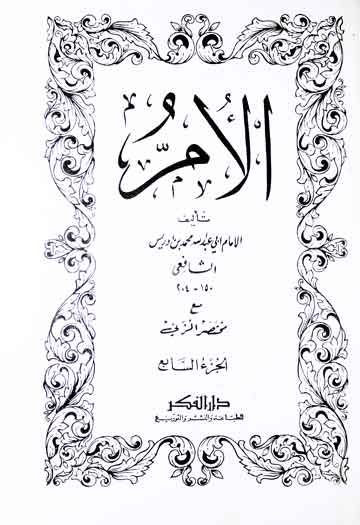 الأُمُّ
تأليف
الامام ابي عبد الله محمد بن ادريس
الشافعي
١٥٠ - ٢٠٤
مع
مختصر المزني
الجزء السابع
دار الفكر
للطباعة والنشر والتوزيع